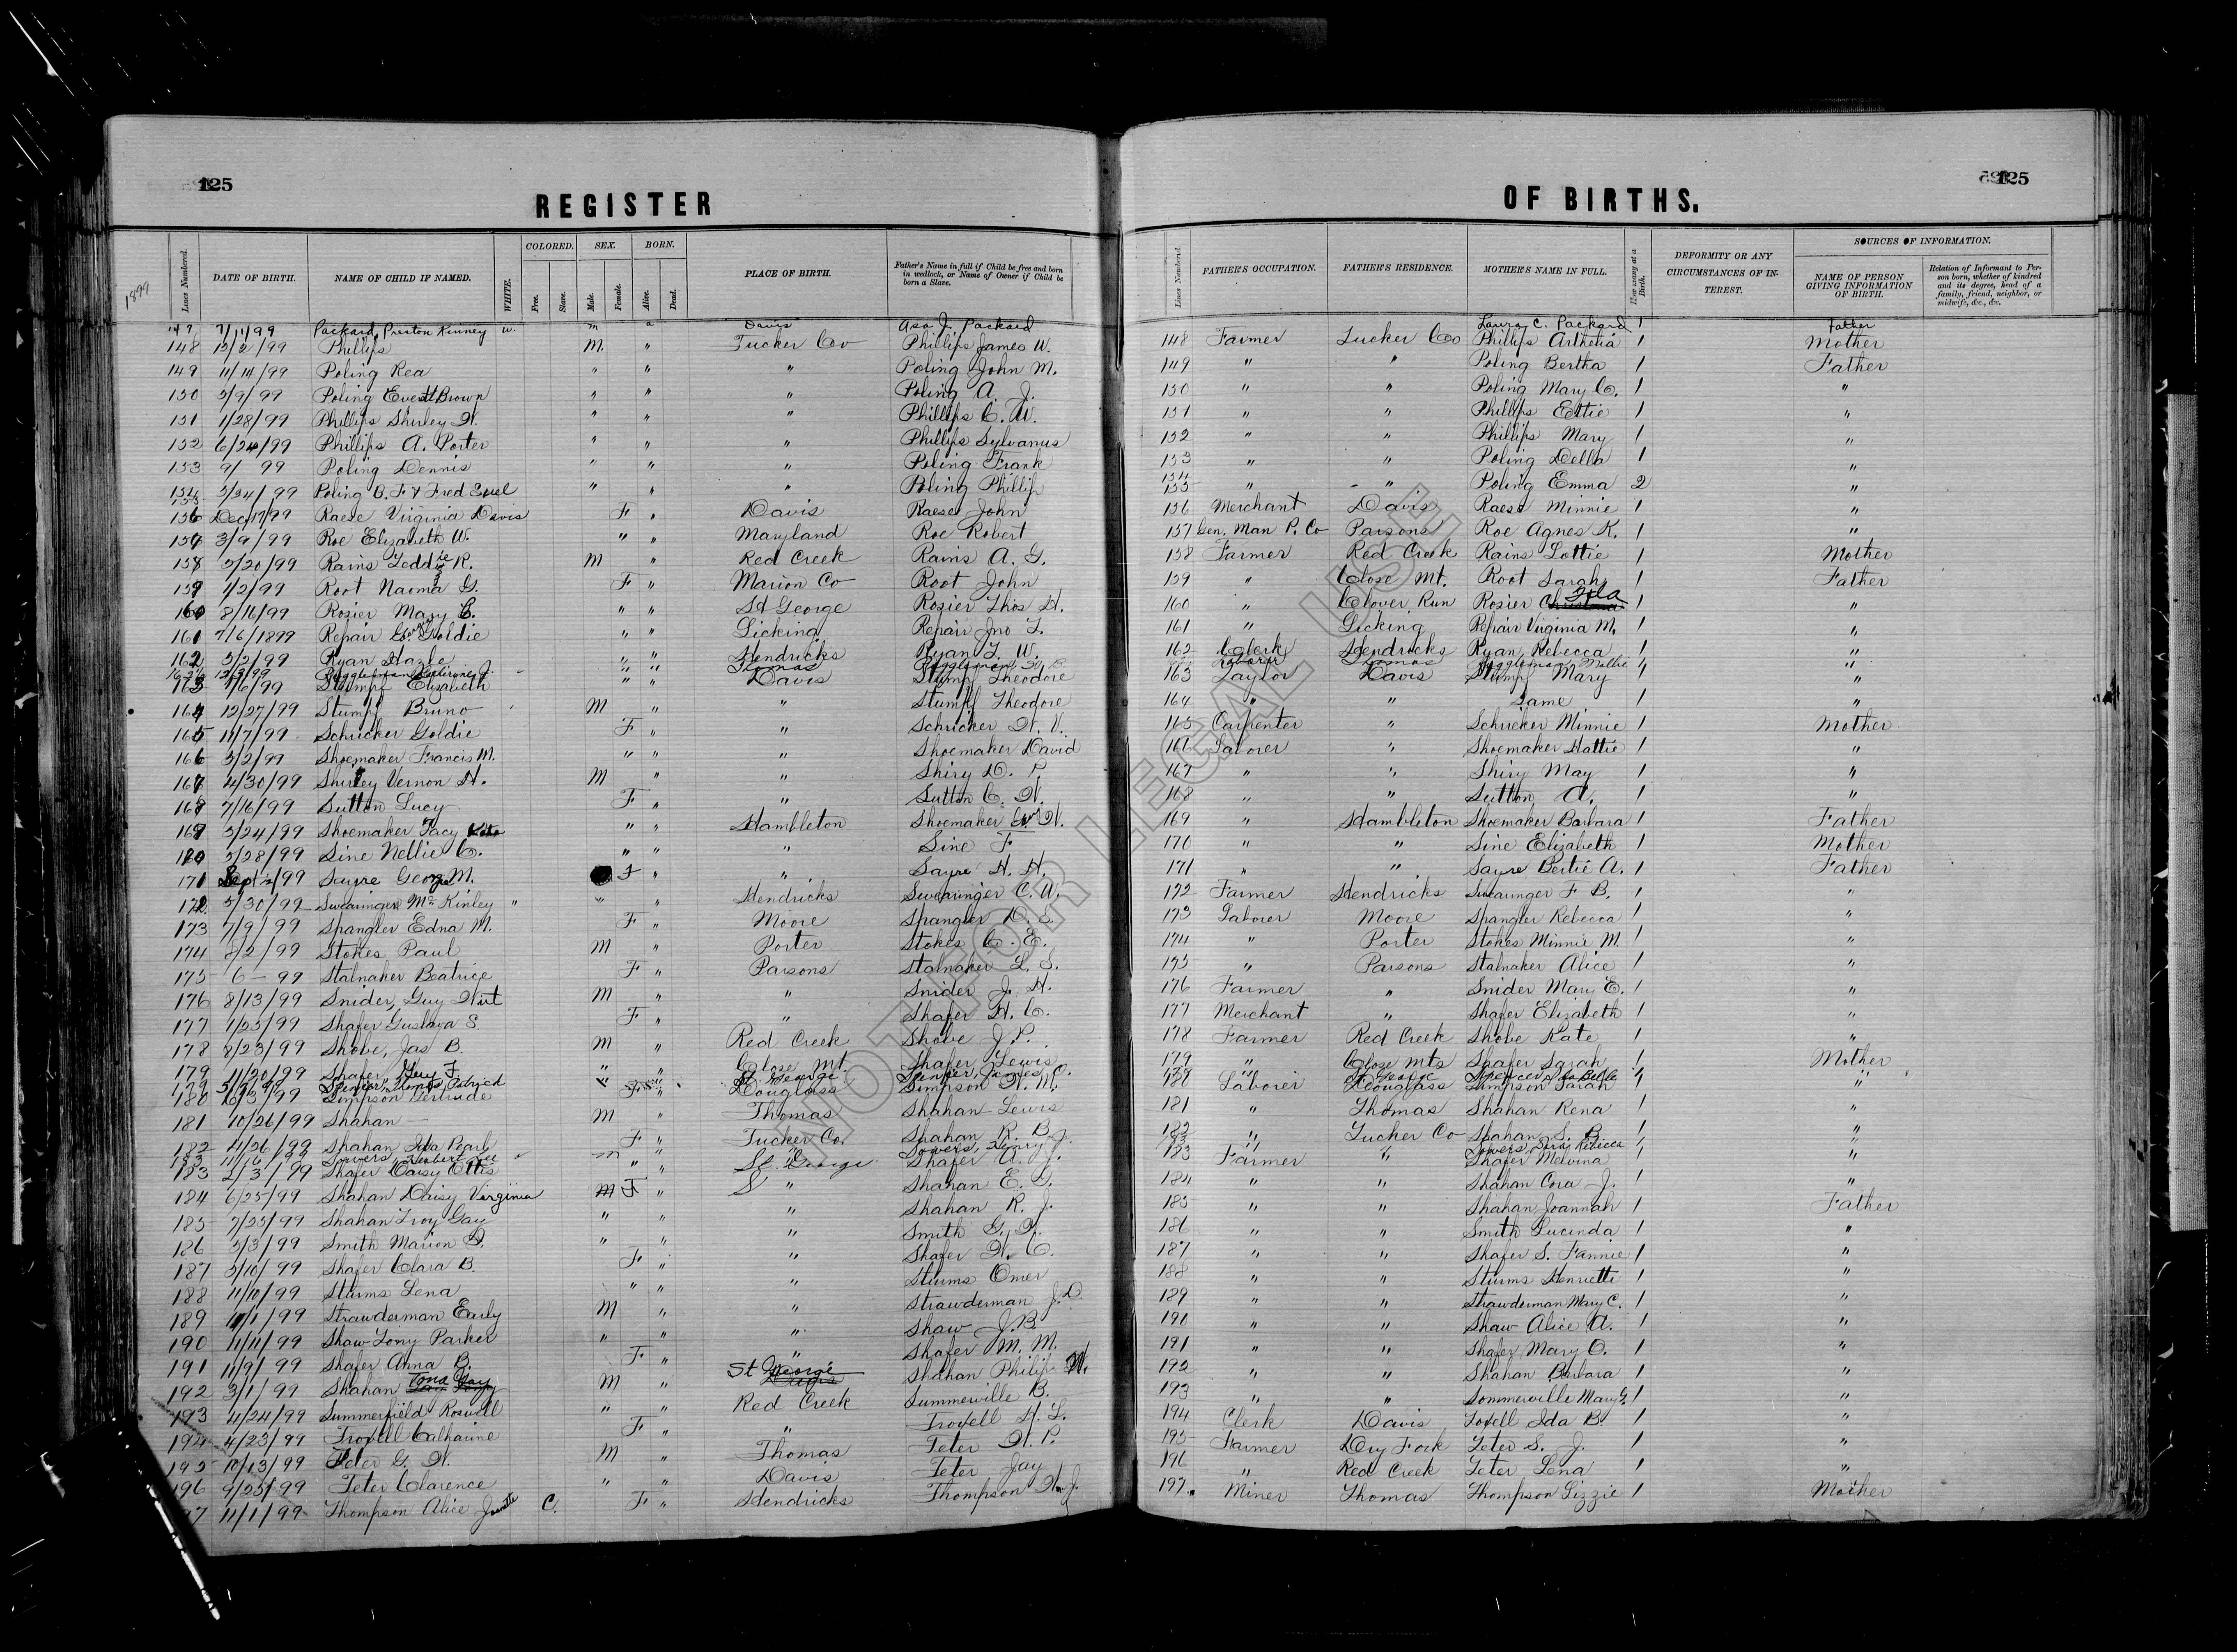 125
REGISTER
1899
Lines Numbered. DATE OF BIRTH. NAME OF CHILD IF NAMED. WHITE. COLORED. Free. Slave. SEX. Male. Female. BORN. Alive. Dead. PLACE OF BIRTH. Father's Name in full if Child be free and born in wedlock, or Name of Owner if Child be born a Slave.
147 7/11/99 Packard, Preston Kinney W. m a Davis Asa J. Packard
148 12/2/99 Phillips M. " Tucker Co Phillips James W.
149 11/14/99 Poling Rea " " " Poling John M.
150 5/9/99 Poling Brown " " " Poling A. J.
151 1/28/99 Phillips Shirley W. " " " Phillips C. W.
152 6/24/99 Phillips A. Porter " " " Phillips Sylvanus
153 9/ 99 Poling Dennis " " " Poling Frank
154 155 5/24/99 Poling B. F. & Fred " " " Poling Phillip
156 Dec 17/99 Raese Virginia Davis F " Davis Raese John
157 3/9/99 Roe Elizabeth W. " " Maryland Roe Robert
158 5/20/99 Rains Teddie R. M " Red Creek Rains A. G.
159 1/2/99 Root Naoma G. F " Marion Co Root John
160 8/16/99 Rosier Mary C. " " St George Rosier Thos H.
161 7/6/1899 Repair Goldie " " Licking Repair Jno T.
162 5/2/99 Ryan Hazle " " Hendricks Ryan T. W.
" " Thomas
163 7/6/99 Stumpf Elizabeth " " Davis Stumpf Theodore
164 12/27/99 Stumpf Bruno M " " Stumpf Theodore
165 11/7/99 Schricker Goldie F " " Schricker W. V.
166 3/2/99 Shoemaker Francis M. " " " Shoemaker David
167 4/30/99 Vernon H. M " " Shiry D. P.
168 7/16/99 Sutton Lucy F " " Sutton C. W.
169 5/24/99 Shoemaker Tacy " " Hambleton Shoemaker W.
170 5/28/99 Sine Nellie C. " " " Sine F
171 Sept /99 Sayre M. F " " Sayre H. H.
172 5/30/99 Swearinger McKinley " " " Hendricks Swearinger C. A.
173 7/9/99 Spangler Edna M. F " Moore Spangler D. S.
174 8/2/99 Stokes Paul M " Porter Stokes C. E.
175 6 - 99 Stalnaker Beatrice F " Parsons Stalnaker L. S.
176 8/13/99 Snider, Guy Hirt M " " Snider J. H.
177 1/25/99 Shafer Gustava S. F " " Shafer H. C.
178 8/23/99 Shobe, Jas B. M " Red Creek Shobe J. P.
179 11/20/99 Shafer Guy F. " " Close Mt. Shafer Lewis
179 Patrick St. George Spencer, James C.
180 6/3/99 Simpson Gertrude F " Douglass Simpson W. M.
181 10/26/99 Shahan — M " Thomas Shahan Lewis
182 4/26/99 Shahan Ida Pearl F " Tucker Co. Shahan R. B.
183 11/16/99 Sowers, Herbert Lee m " " Sowers, Henry J.
183 2/3/99 Shafer Daisy Ottis " " St. George Shafer A. J.
184 6/25/99 Shahan Daisy Virginia M F " S " Shahan E. T.
185 7/25/99 Shahan Troy Gay " " " Shahan R. J.
186 5/3/99 Smith Marion D. " " " Smith G. W.
187 5/10/99 Shafer Clara B. F " " Shafer W. C.
188 11/10/99 Sturms Lena " " " Sturms Omer
189 11/1/99 Strawderman Early M " " Strawderman J. D.
190 11/11/99 Shaw Tony Parker " " " Shaw J. B.
191 11/9/99 Shafer Anna B. F " " Shafer M. M.
192 3/1/99 Shahan Gay M " St George Davis Shahan Philip W.
193 4/24/99 Summerfield Roswell " " Red Creek Summerville B.
194 4/23/99 Troxell Catharine F " " Troxell H. L.
195 10/13/99 Teter G. W. M " Thomas Teter W. P.
196 9/25/99 Teter Clarence " " Davis Teter Jay
97 11/1/99 Thompson Alice C. F " Hendricks Thompson W. J.
125
OF BIRTHS.
Lines Numbered. FATHER'S OCCUPATION. FATHER'S RESIDENCE. MOTHER'S NAME IN FULL. How many at a Birth. DEFORMITY OR ANY CIRCUMSTANCES OF INTEREST. SOURCES OF INFORMATION. NAME OF PERSON GIVING INFORMATION OF BIRTH. Relation of Informant to Person born, whether of kindred and its degree, head of a family, friend, neighbor, or midwife, &c., &c.
Laura C. Packard 1 Father
148 Farmer Tucker Co Phillips Arthelia 1 Mother
149 " " Poling Bertha 1 Father
150 " " Poling Mary C. 1 "
151 " " Phillips Edttie 1 "
152 " " Phillips Mary 1 "
153 " " Poling Della 1 "
154 155 " " Poling Emma 2 "
156 Merchant Davis Raese Minnie 1 "
157 Gen. Man P. Co Parsons Roe Agnes K. 1 "
158 Farmer Red Creek Rains Lottie 1 Mother
159 " Close Mt. Root Sarah 1 Father
160 " Clover Run Rosier Ida 1 "
161 " Licking Repair Virginia M. 1 "
162 Clerk Hendricks Ryan Rebecca 1 "
Laborer Thomas Mollie 1 "
163 Taylor Davis Stumpf Mary 1 "
164 " " Same 1 "
165 Carpenter " Schricker Minnie 1 Mother
166 Laborer " Shoemaker Hattie 1 "
167 " " Shiry May 1 "
168 " " Sutton A. 1 "
169 " Hambleton Shoemaker Barbara 1 Father
170 " " Sine Elizabeth 1 Mother
171 " " Sayre Bertie A. 1 Father
172 Farmer Hendricks Swearinger F B. 1 "
173 Laborer Moore Spangler Rebecca 1 "
174 " Porter Stokes Minnie M. 1 "
175 " Parsons Stalnaker Alice 1 "
176 Farmer " Snider Mary E. 1 "
177 Merchant " Shafer Elizabeth 1 "
178 Farmer Red Creek Shobe Kate 1 "
179 " Close Mts Shafer Sarah 1 Mother
179 " St. George Spencer, Belle 1 "
180 Laborer Douglass Simpson Sarah 1
181 " Thomas Shahan Rena 1 "
182 " Tucker Co Shahan S. B. 1 "
183 " Sowers, Sarah Rebecca 1 "
183 Farmer " Shafer Melvina 1 "
184 " " Shahan Cora J. 1 "
185 " " Shahan Joannah 1 Father
186 " " Smith Lucinda 1 "
187 " " Shafer S. Fannie 1 "
188 " " Sturms Henrietti 1 "
189 " " Strawderman Mary C. 1 "
190 " " Shaw Alice A. 1 "
191 " " Shafer Mary O. 1 "
192 " " Shahan Barbara 1 "
193 " " Sommerville Mary G. 1 "
194 Clerk Davis Ida B. 1 "
195 Farmer Dry Fork Teter S. J. 1 "
196 " Red Creek Teter Lena 1 "
197 Miner Thomas Thompson Lizzie 1 Mother
NOT FOR LEGAL USE